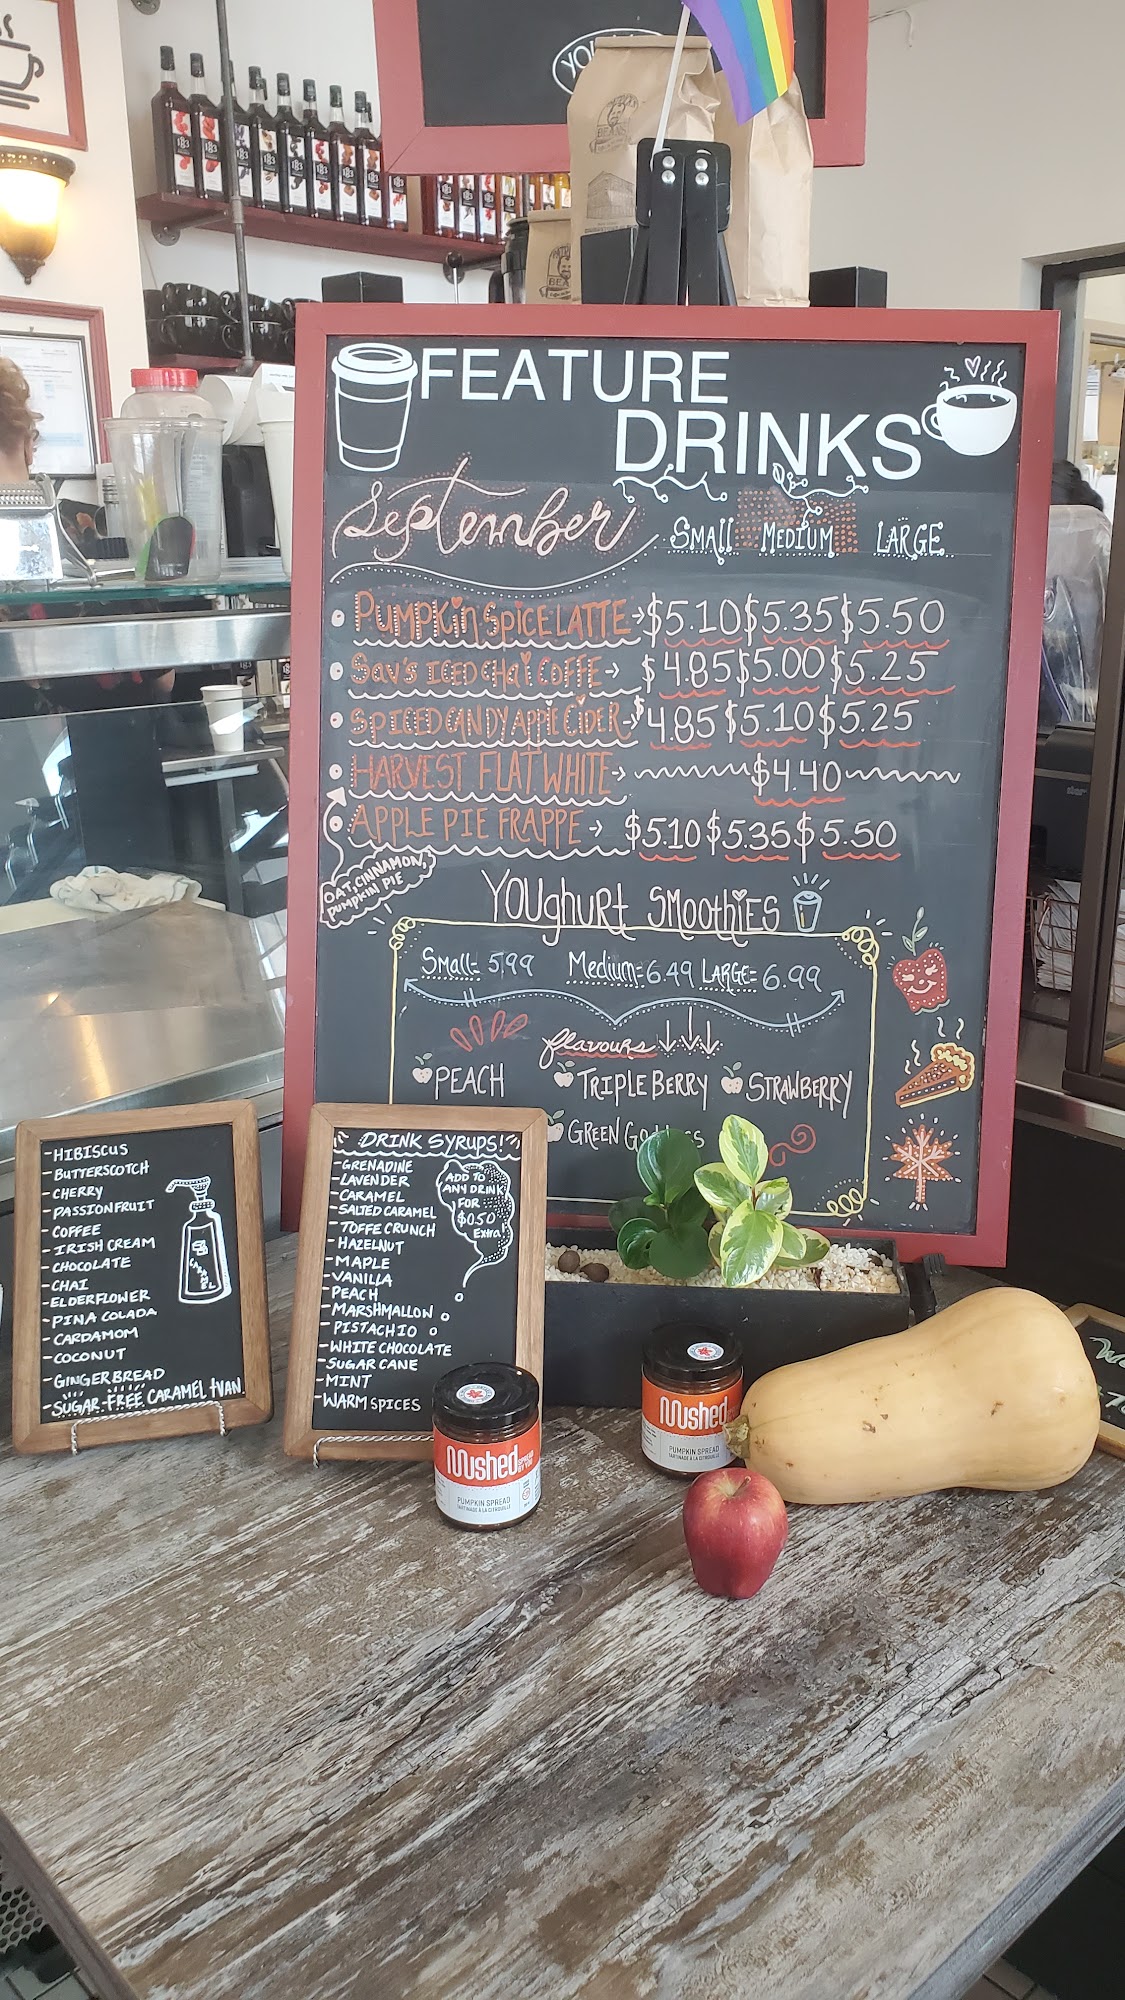 183
183
183
183
183
183
183
BEANS
FEATURE
DRINKS
September
SMall MEDIUM LARGE
PUMPKIN SPICE LATTE → $5.10 $5.35 $5.50
SAV'S ICED CHAI COFFE → $4.85 $5.00 $5.25
SPICED CANDY APPLE CIDER → $4.85 $5.10 $5.25
HARVEST FLAT WHITE → $4.40
APPLE PIE FRAPPE → $5.10 $5.35 $5.50
OAT, CINNAMON,
PUMPKIN PIE
YOUghuRt SMoothiES
Small= 5.99 Medium= 6.49 LARGE= 6.99
flavours ↓↓↓
PEACH TRIPLE BERRY STRAWBERRY
GREEN
- HIBISCUS
- BUTTERSCOTCH
- CHERRY
- PASSIONFRUIT
- COFFEE
- IRISH CREAM
- CHOCOLATE
- CHAI
- ELDERFLOWER
- PINA COLADA
- CARDAMOM
- COCONUT
- GINGERBREAD
- SUGAR-FREE CARAMEL + VAN.
DRINK SYRUPS!
- GRENADINE
- LAVENDER
- CARAMEL
- SALTED CARAMEL
- TOFFE CRUNCH
- HAZELNUT
- MAPLE
- VANILLA
- PEACH
- MARSHMALLON
- PISTACHIO
- WHITE CHOCOLATE
- SUGAR CANE
- MINT
- WARM SPICES
ADD TO
ANY DRINK
FOR
$0.50
Extra
Mushed SPREAD
BY YOU
PUMPKIN SPREAD
TARTINADE À LA CITROUILLE
Mushed
PUMPKIN SPREAD
TARTINADE À LA CITROUILLE